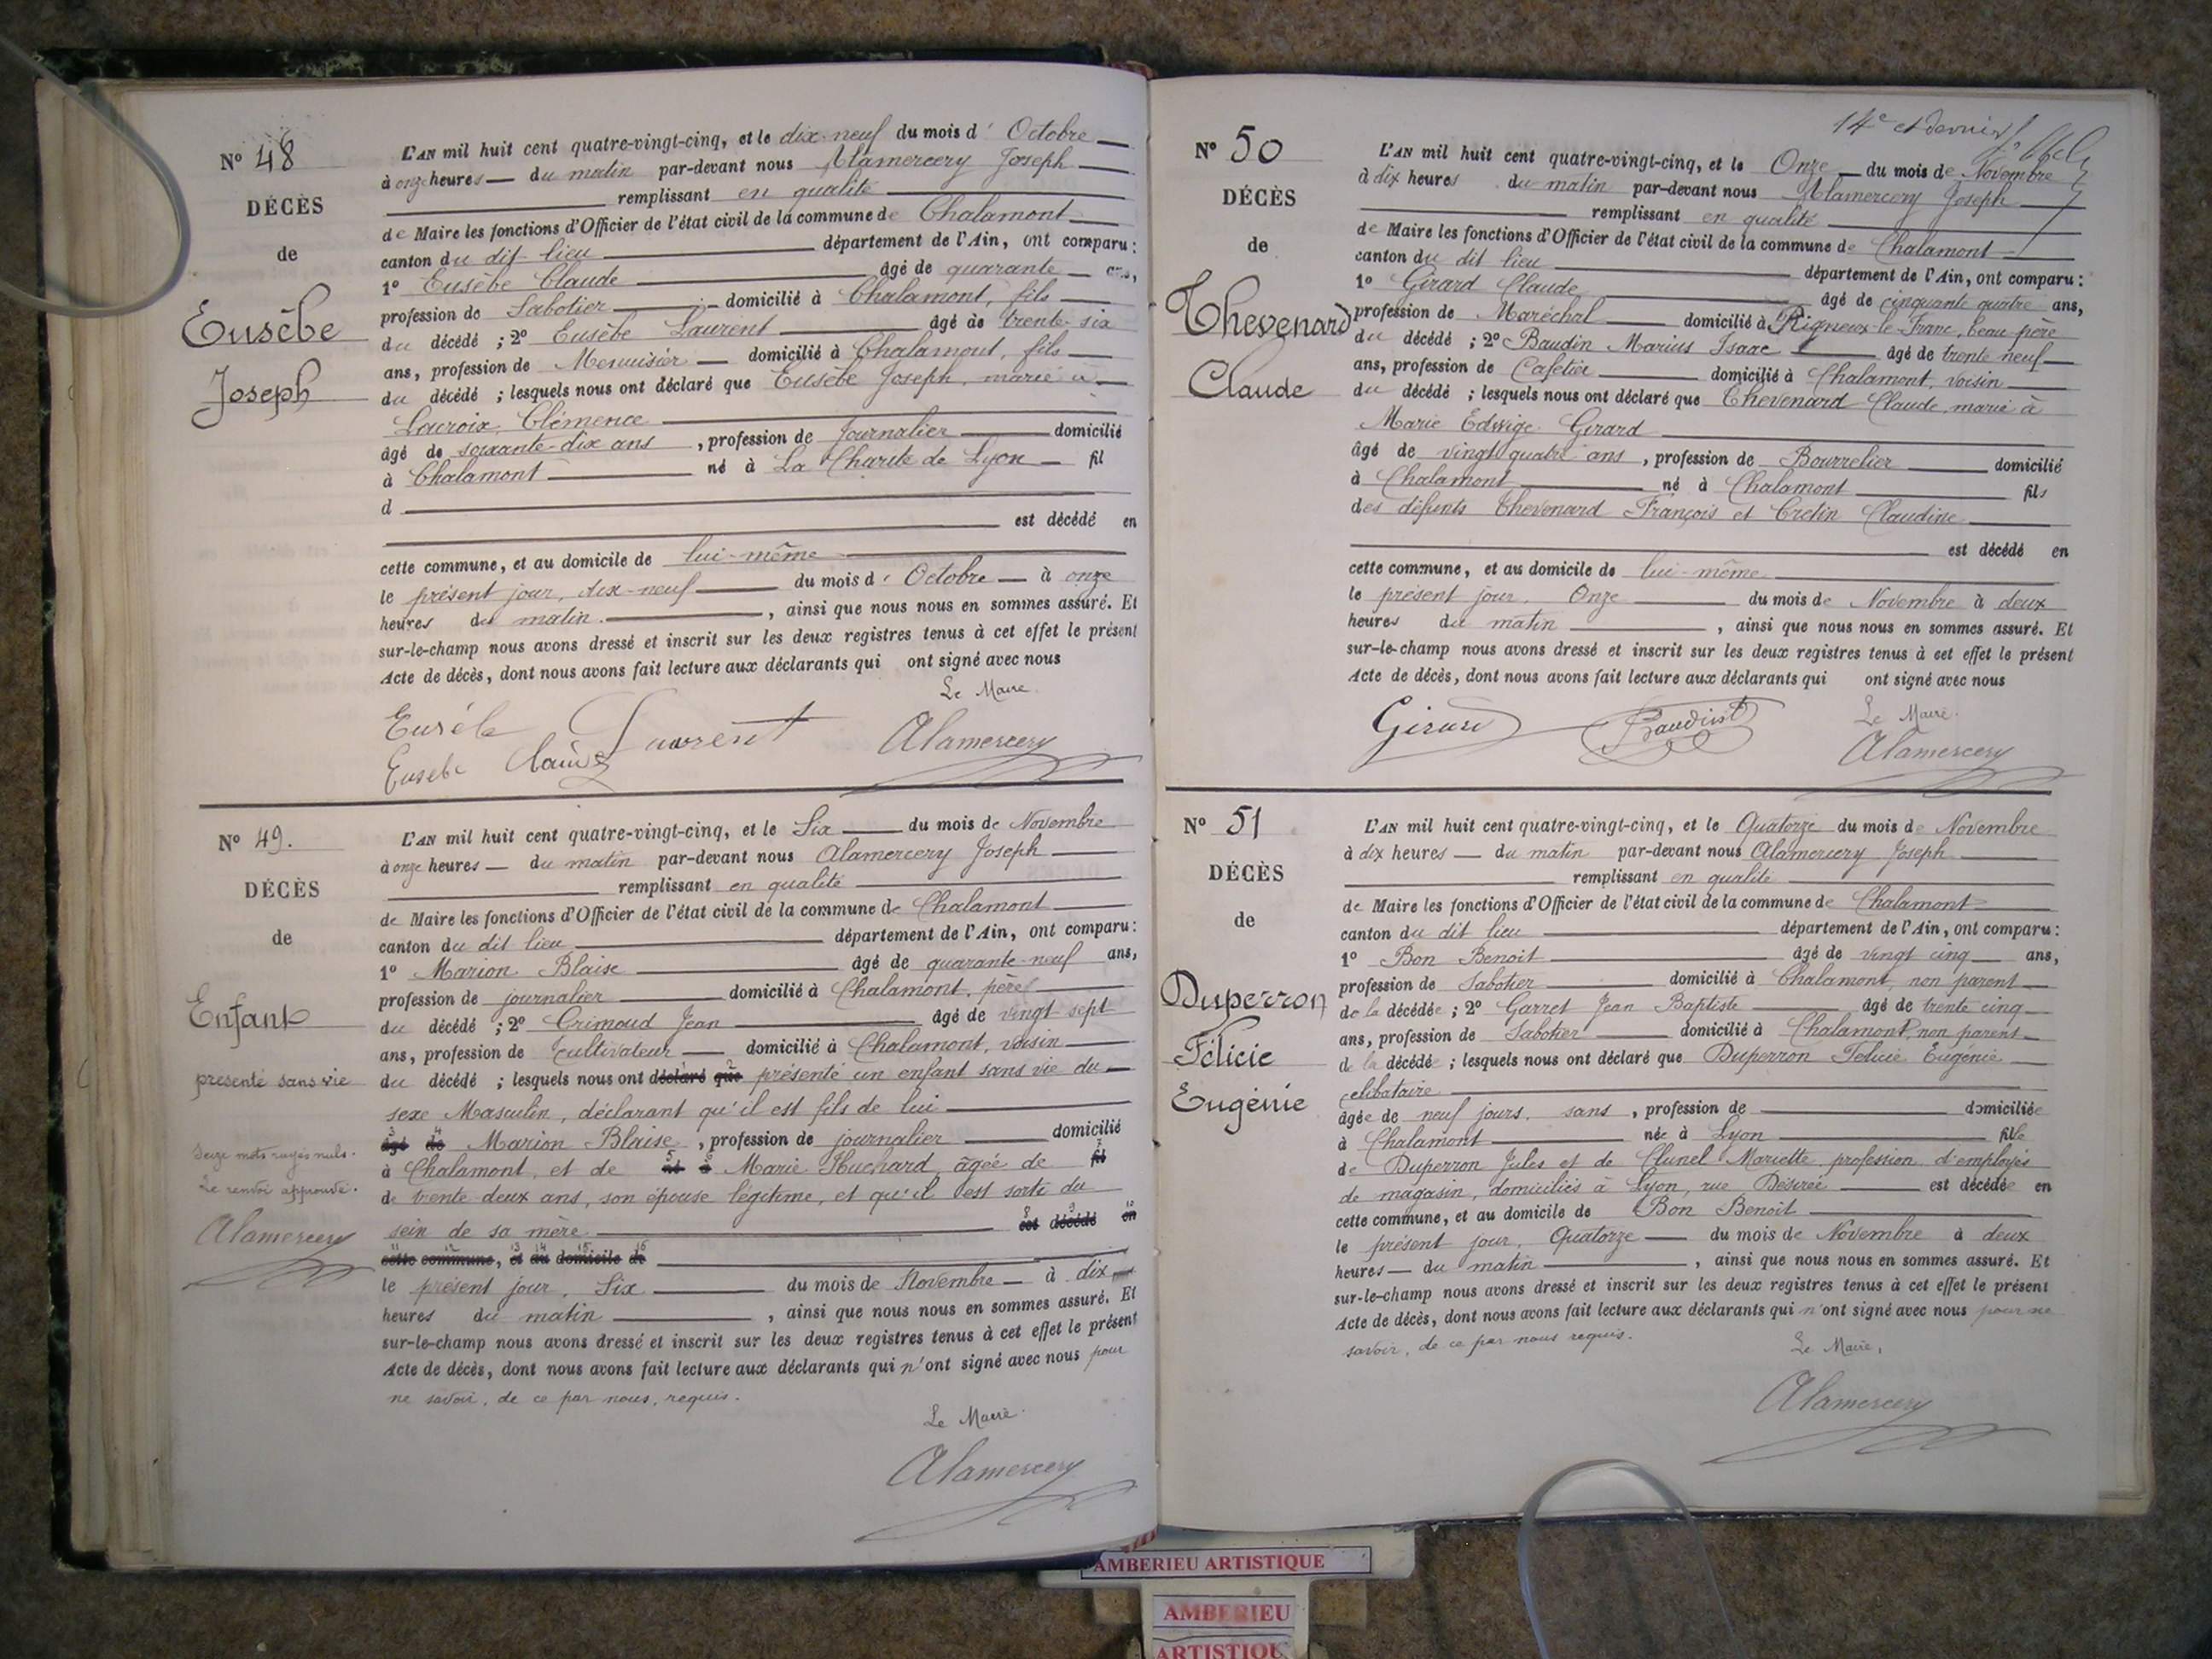 Nº 48
DÉCÈS
de
Eusèbe
Joseph
L'AN mil huit cent quatre-vingt-cinq, et le dix-neuf du mois d' Octobre
à onze heures du matin par-devant nous Alamercery Joseph
remplissant en qualité
de Maire les fonctions d'Officier de l'état civil de la commune de Chalamont
canton du dit lieu département de l'Ain, ont comparu :
1º Eusèbe Claude âgé de quarante ans,
profession de Sabotier domicilié à Chalamont, fils
du décédé ; 2º Eusèbe Laurent âgé de trente-six
ans, profession de Menuisier domicilié à Chalamont, fils
du décédé ; lesquels nous ont déclaré que Eusèbe Joseph, marié à
Lacroix Clémence
âgé de soixante-dix ans , profession de Journalier domicilié
à Chalamont né à La Charité de Lyon fil
d
est décédé en
cette commune, et au domicile de lui-même
le présent jour, dix-neuf du mois d' Octobre à onze
heures du matin , ainsi que nous nous en sommes assuré. Et
sur-le-champ nous avons dressé et inscrit sur les deux registres tenus à cet effet le présent
Acte de décès, dont nous avons fait lecture aux déclarants qui ont signé avec nous
Le Maire
Eusèbe Laurent
Eusebe Claude
Alamercery
Nº 49.
DÉCÈS
de
Enfant
présenté sans vie
Seize mots rayés nuls.
Le renvoi approuvé.
Alamercery
L'AN mil huit cent quatre-vingt-cinq, et le Six du mois de Novembre
à onze heures du matin par-devant nous Alamercery Joseph
remplissant en qualité
de Maire les fonctions d'Officier de l'état civil de la commune de Chalamont
canton du dit lieu département de l'Ain, ont comparu :
1º Marion Blaise âgé de quarante-neuf ans,
profession de journalier domicilié à Chalamont, père
du décédé ; 2º Grimoud Jean âgé de vingt sept
ans, profession de Cultivateur domicilié à Chalamont, voisin
du décédé ; lesquels nous ont déclaré que présenté un enfant sans vie du
sexe Masculin, déclarant qu'il est fils de lui
âgé de Marion Blaise , profession de journalier domicilié
à Chalamont, et de né à Marie Huchard, âgée de fil
de trente deux ans, son épouse légitime, et qu'il est sorti du
sein de sa mère est décédé en
cette commune, et au domicile de
le présent jour, Six du mois de Novembre à dix
heures du matin , ainsi que nous nous en sommes assuré. Et
sur-le-champ nous avons dressé et inscrit sur les deux registres tenus à cet effet le présent
Acte de décès, dont nous avons fait lecture aux déclarants qui n'ont signé avec nous pour
ne savoir, de ce par nous, requis.
Le Maire
Alamercery
14e et dernier
Nº 50
DÉCÈS
de
Thevenard
Claude
L'AN mil huit cent quatre-vingt-cinq, et le Onze du mois de Novembre
à dix heures du matin par-devant nous Alamercery Joseph
remplissant en qualité
de Maire les fonctions d'Officier de l'état civil de la commune de Chalamont
canton du dit lieu département de l'Ain, ont comparu :
1º Girard Claude âgé de cinquante quatre ans,
profession de Maréchal domicilié à Rigneux-le-Franc, beau père
du décédé ; 2º Baudin Marius Isaac âgé de trente neuf
ans, profession de Cafetier domicilié à Chalamont, voisin
du décédé ; lesquels nous ont déclaré que Thevenard Claude, marié à
Marie Edwige Girard
âgé de vingt quatre ans , profession de Bourrelier domicilié
à Chalamont né à Chalamont fils
des défunts Thevenard François et Cretin Claudine
est décédé en
cette commune, et au domicile de lui-même
le présent jour, Onze du mois de Novembre à deux
heures du matin , ainsi que nous nous en sommes assuré. Et
sur-le-champ nous avons dressé et inscrit sur les deux registres tenus à cet effet le présent
Acte de décès, dont nous avons fait lecture aux déclarants qui ont signé avec nous
Le Maire.
Girard
Baudin
Alamercery
Nº 51
DÉCÈS
de
Duperron
Félicie
Eugénie
L'AN mil huit cent quatre-vingt-cinq, et le Quatorze du mois de Novembre
à dix heures du matin par-devant nous Alamercery Joseph
remplissant en qualité
de Maire les fonctions d'Officier de l'état civil de la commune de Chalamont
canton du dit lieu département de l'Ain, ont comparu :
1º Bon Benoit âgé de vingt cinq ans,
profession de Sabotier domicilié à Chalamont, non parent
de la décédée ; 2º Garret Jean Baptiste âgé de trente cinq
ans, profession de Sabotier domicilié à Chalamont, non parent
de la décédé ; lesquels nous ont déclaré que Duperron Felicie Eugénie
celibataire
âgée de neuf jours, sans , profession de domiciliée
à Chalamont née à Lyon fille
de Duperron Jules et de Clunel Mariette, profession d'employés
de magasin, domiciliés à Lyon, rue Désirée est décédée en
cette commune, et au domicile de Bon Benoit
le présent jour, Quatorze du mois de Novembre à deux
heures du matin , ainsi que nous nous en sommes assuré. Et
sur-le-champ nous avons dressé et inscrit sur les deux registres tenus à cet effet le présent
Acte de décès, dont nous avons fait lecture aux déclarants qui n'ont signé avec nous pour ne
savoir, de ce par nous requis.
Le Maire,
Alamercery
AMBERIEU ARTISTIQUE
AMBERIEU
ARTISTIQUE